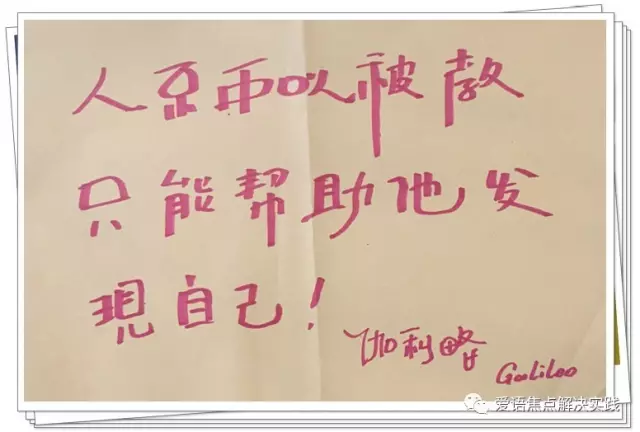 人 以被教
只能帮助他发
現自己!
伽利略
Galileo
爱语焦点解决实践